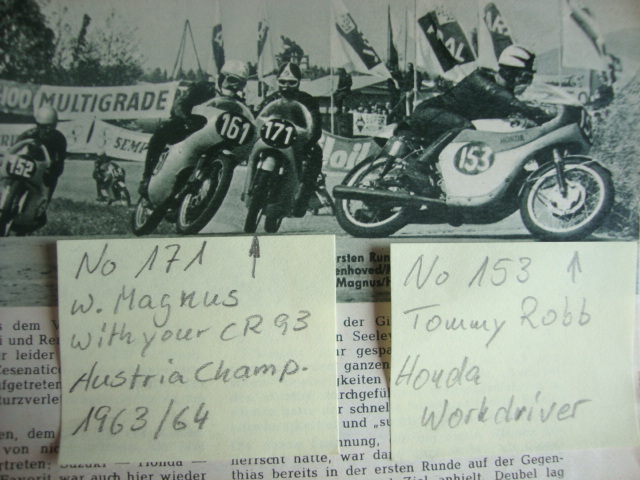 100 MULTIGRADE
SEMP
152
161
171
153
ersten Run
enhoved/M
Magnus/H
No 171
W. Magnus
with your CR 93
Austria Champ.
1963/64
No 153
Tommy Robb
Honda
Workdriver
s dem
i und Re
er leider
Cesenatico
ufgetreten
turzverle
der Gi
n Seelev
ar gespa
ganzen
igkeiten
rchgefüh
r schnel
und „su
nnung,
en, dem
von nic
ertreten; Suzuki — Honda —
Favorit war auch hier wieder
herrscht hatte, war da
thias bereits in der ersten Runde auf der Gegen-
Ziel anhielt. Deubel lag